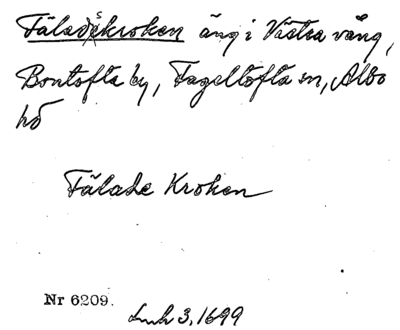 Fäladskroken äng i Västra vång,
Bontofta by, Fågeltofta sn, Albo
hd
Fälade Kroken
Nr 6209.
Lmh 3, 1699